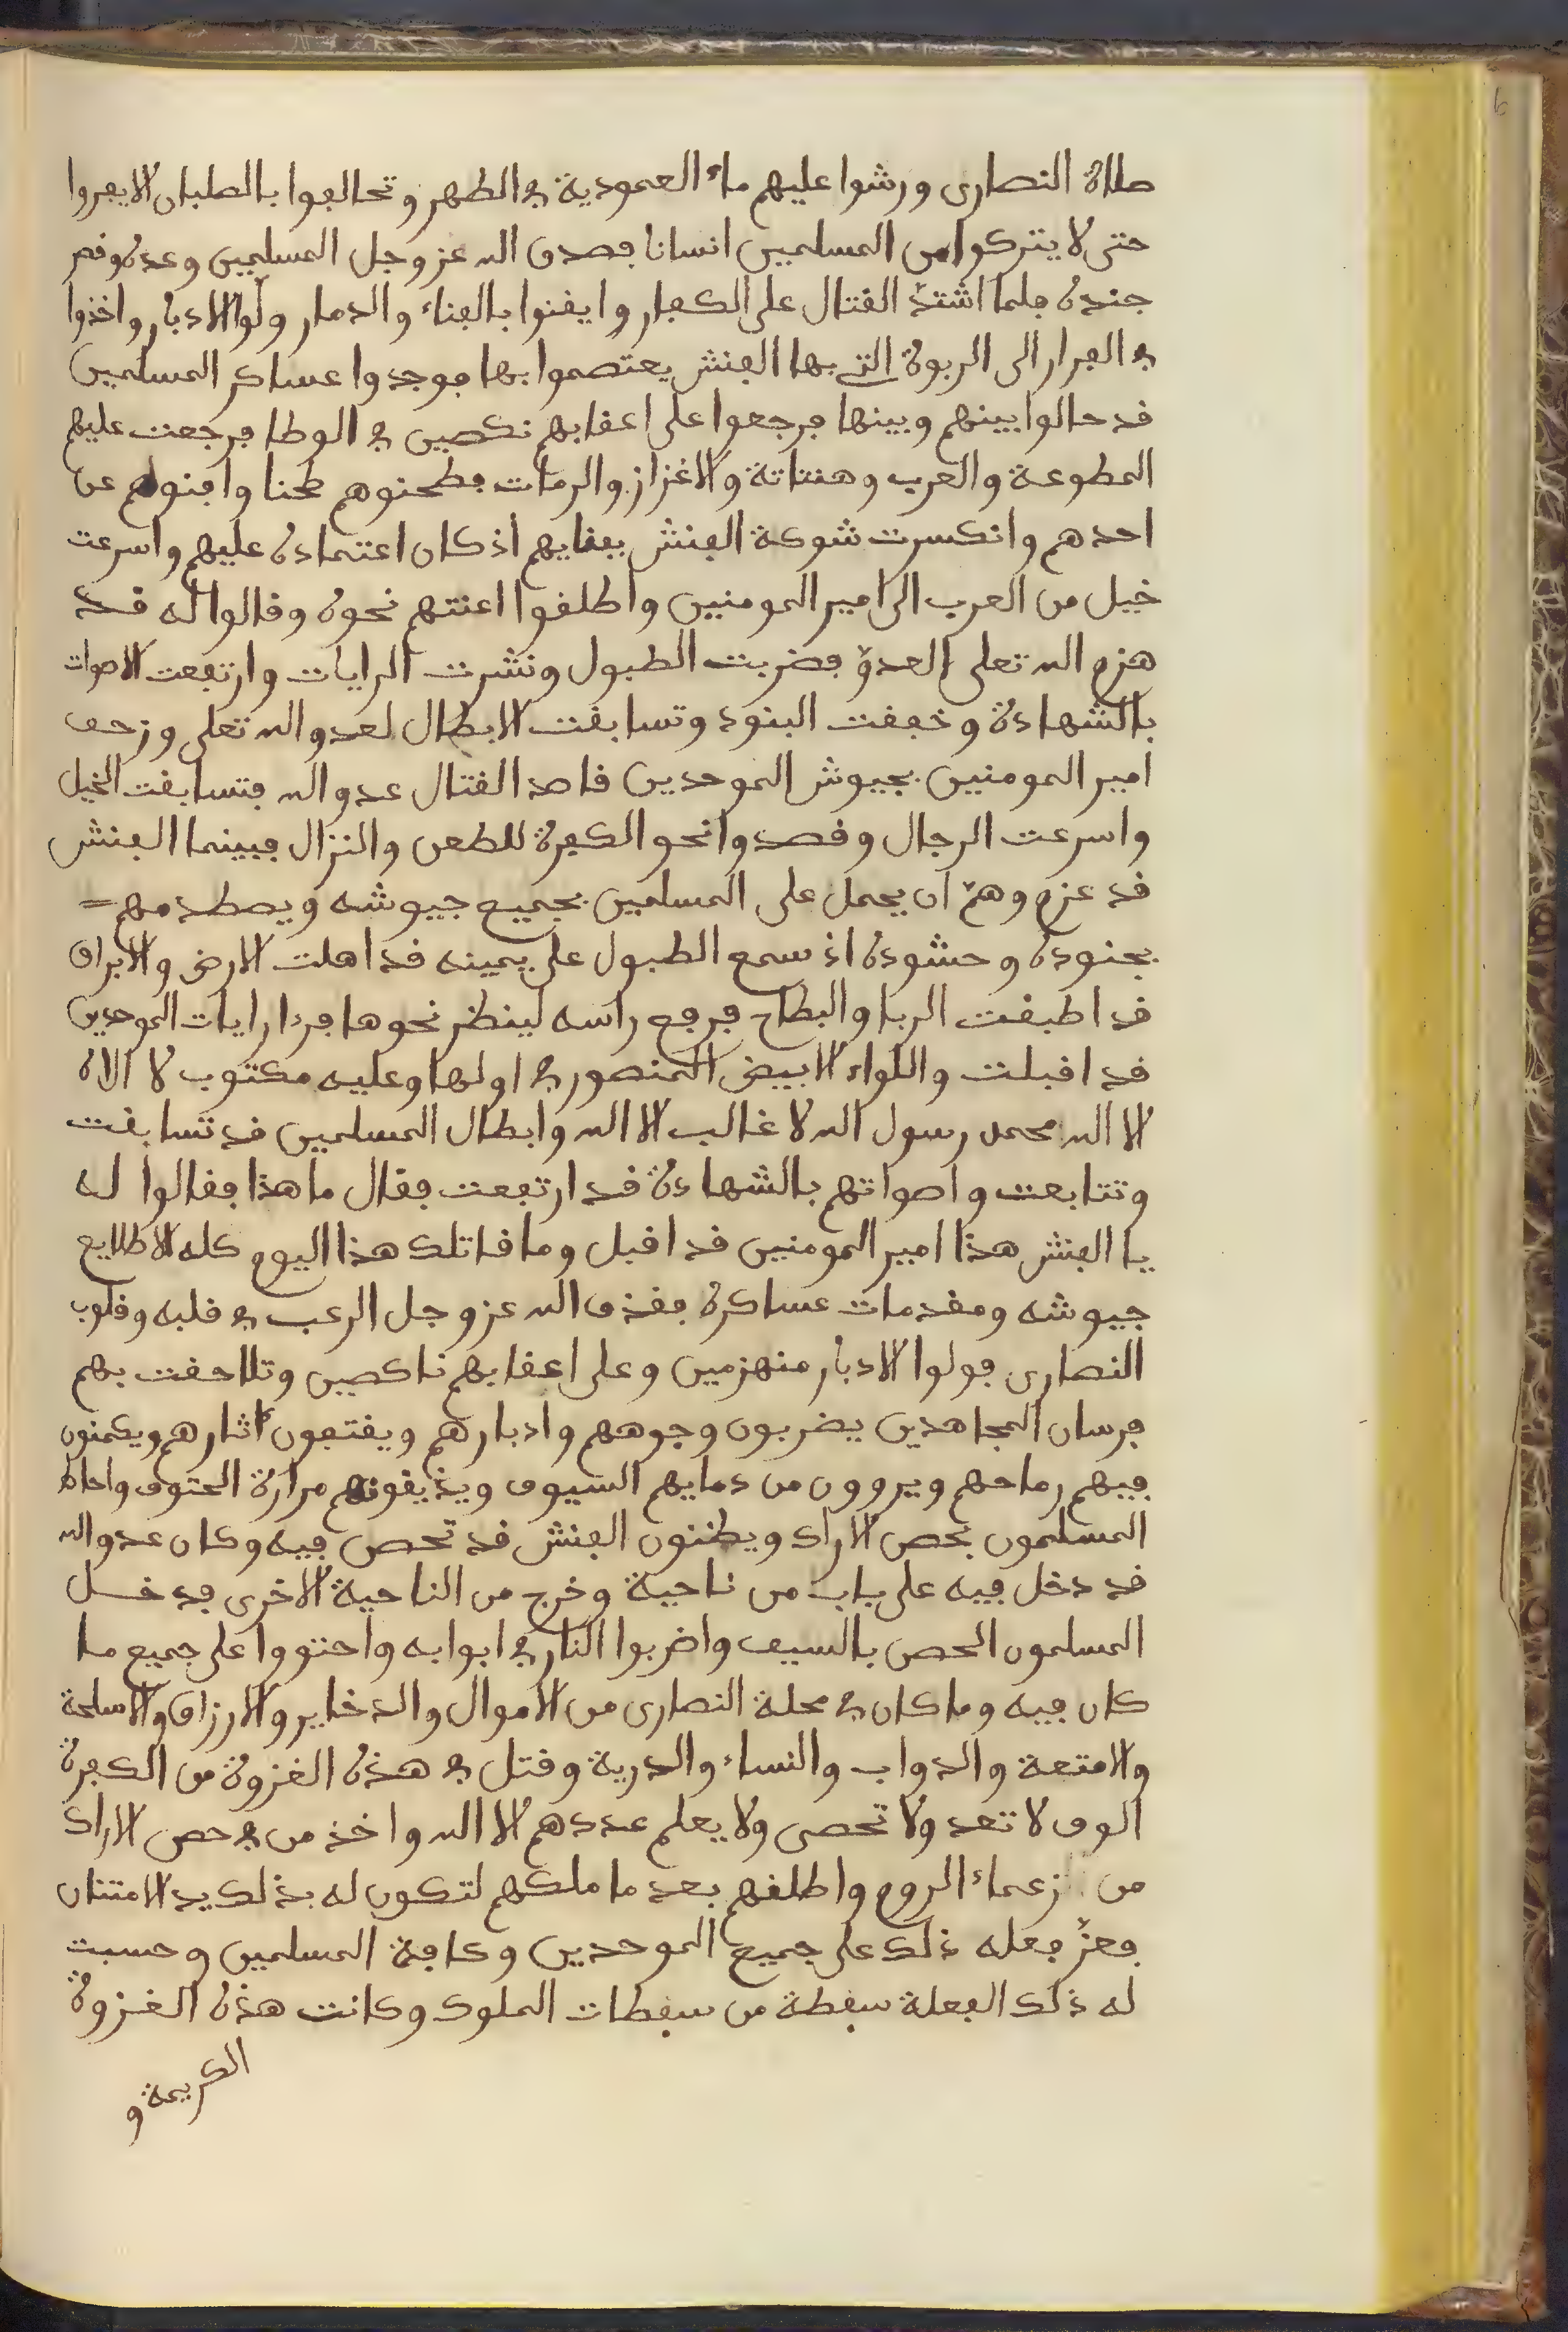 صلاة النصارى ورشوا عليهم ماء العمودية في الطهر وتحالفوا بالصلبان الا يفروا
حتى لا يتركوا من المسلمين انسانا فصدق الله عز وجل المسلمين وعده ونصر
جنده فلما اشتدّ القتال على الكفار وايقنوا بالفناء والدمار ولّوا الادبار واخذوا
في الفرار الى الربوة التي بها الفنش يعتصموا بها فوجدوا عساكر المسلمين
قد حالوا بينهم وبينها فرجعوا على اعقابهم نكصين في الوطا فرجعت عليهم
المطوعة والعرب وهنتاتة والاغزاز والرمات فطحنوهم طحنا وافنوهم عن
احدهم وانكسرت شوكة الفنش بفنايهم اذ كان اعتماده عليهم واسرعت
خيل من العرب الى امير المومنين واطلقوا اعنتهم نحوه وقالوا له قد
هزم الله تعلى العدوّ فضربت الطبول ونشرت الرايات وارتفعت الاصوات
بالشهادة وخفقت البنود وتسابقت الابطال لعدو الله تعلى وزحف
امير المومنين بجيوش الموحدين قاصد القتال عدو الله فتسابقت الخيل
واسرعت الرجال وقصدوا نحو الكفرة للطعن والنزال فبينما الفنش
قد عزم وهمّ ان يحمل على المسلمين بجميع جيوشه ويصطدمهم =
بجنوده وحشوده اذ سمع الطبول على يمينه قد اهلت الارض والابراق
قد اطبقت الربا والبطاح فرفع راسه لينظر نحوها فرءا رايات الموحدين
قد اقبلت واللواء الابيض المنصور في اولها وعليه مكتوب لا الاه
الا الله محمد رسول الله لا غالب الا الله وابطال المسلمين قد تسابقت
وتتابعت واصواتهم بالشهادة قد ارتفعت فقال ما هذا فقالوا له
يا الفنش هذا امير المومنين قد اقبل وما قاتلك هذا اليوم كله الا طلايع
جيوشه ومقدمات عساكره فقذف الله عز وجل الرعب في قلبه وقلوب
النصارى فولوا الادبار منهزمين وعلى اعقابهم ناكصين وتلاحقت بهم
فرسان المجاهدين يضربون وجوههم وادبارهم ويقتفون اثارهم ويكمنون
فيهم رماحهم ويروون من دمايهم السيوف ويذيقونهم مرارة الحتوف واحاط
المسلمون بحصن الاراك ويظنون الفنش قد تحصن فيه وكان عدو الله
قد دخل فيه على باب من ناحية وخرج من الناحية الاخرى فدخل
المسلمون الحصن بالسيف واضربوا النار في ابوابه واحتووا على جميع ما
كان فيه وما كان في محلة النصارى من الاموال والدخاير والارزاق والاسلحة
والامتعة والدواب والنساء والدرية وقتل في هذه الغزوة من الكفرة
الوف لا تعد ولا تحصى ولا يعلم عددهم الا الله واخذ من في حصن الاراك
من زعماء الروم واطلقهم بعد ما ملكهم لتكون له بذلك يد الامتنان
فعزّ فعله ذلك على جميع الموحدين وكافة المسلمين وحسبت
له ذلك الفعلة سقطة من سقطات الملوك وكانت هذه الغزوة
الكريمة و